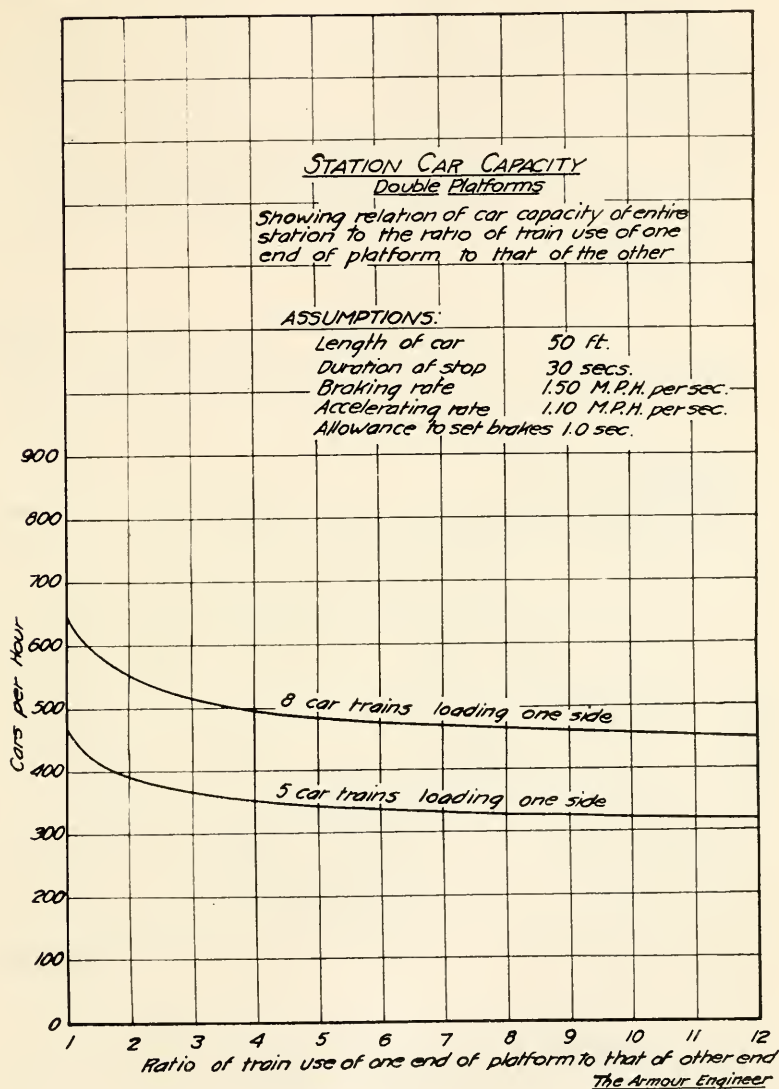 STATION CAR CAPACITY
Double Platforms
Showing relation of car capacity of entire
station to the ratio of train use of one
end of platform to that of the other
ASSUMPTIONS:
Length of car 50 ft.
Duration of stop 30 secs.
Braking rate 1.50 M.P.H. per sec.
Accelerating rate 1.10 M.P.H. per sec.
Allowance to set brakes 1.0 sec.
900
800
700
600
500
400
300
200
100
0
Cars per Hour
8 car trains loading one side
5 car trains loading one side
1 2 3 4 5 6 7 8 9 10 11 12
Ratio of train use of one end of platform to that of other end
The Armour Engineer